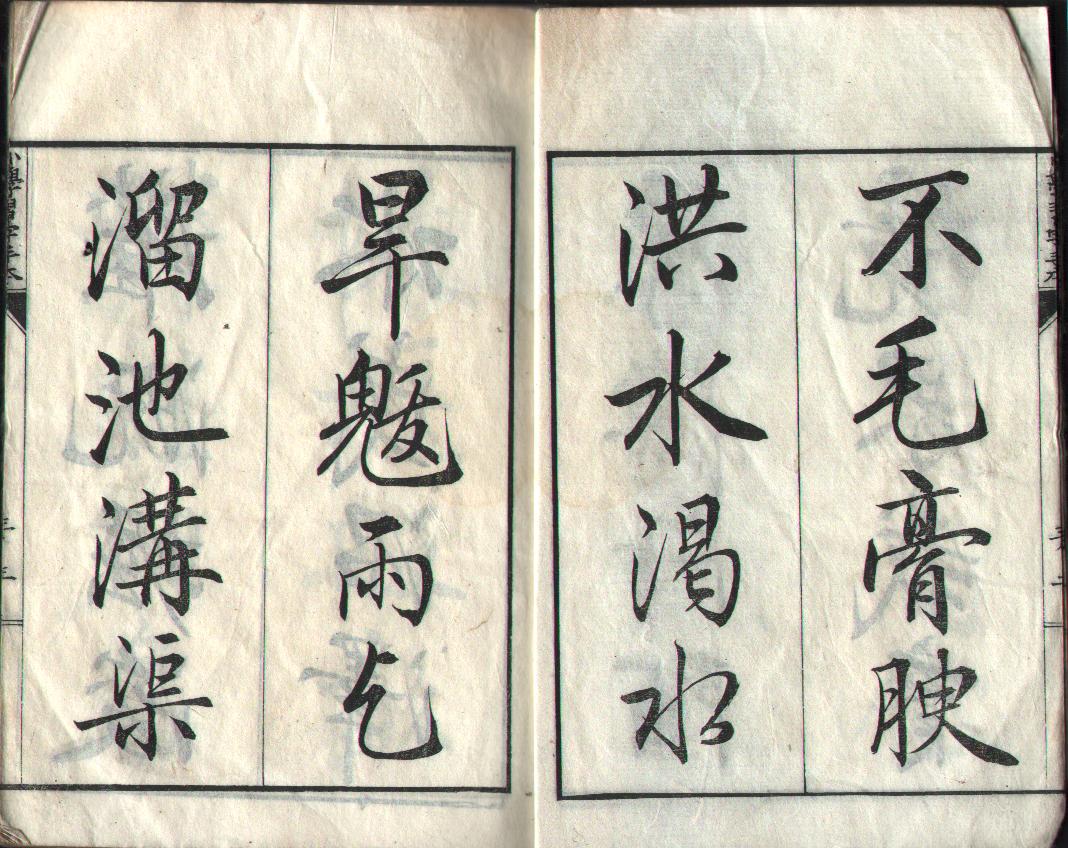 不毛膏腴
洪水渴水
旱魃雨乞
溜池溝渠